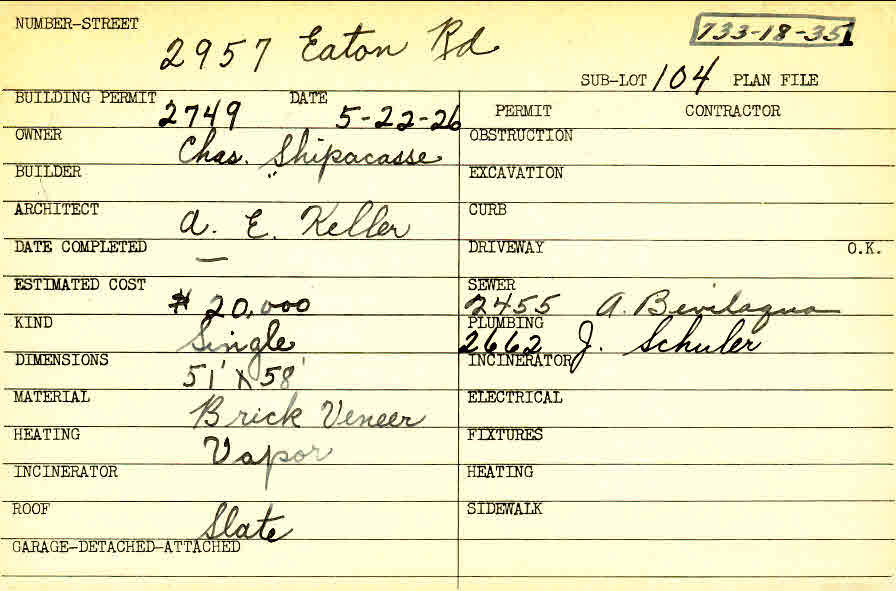 NUMBER-STREET 2957 Eaton Rd 733-18-351
SUB-LOT 104 PLAN FILE
BUILDING PERMIT 2749 DATE 5-22-26 PERMIT CONTRACTOR
OWNER Chas. Shipacasse OBSTRUCTION
BUILDER " EXCAVATION
ARCHITECT A. E. Keller CURB
DATE COMPLETED — DRIVEWAY O.K.
ESTIMATED COST $20,000 SEWER 2455 A. Bevilaqua
KIND Single PLUMBING 2662 J. Schuler
DIMENSIONS 51' X 58' INCINERATOR
MATERIAL Brick Veneer ELECTRICAL
HEATING Vapor FIXTURES
INCINERATOR HEATING
ROOF Slate SIDEWALK
GARAGE-DETACHED-ATTACHED